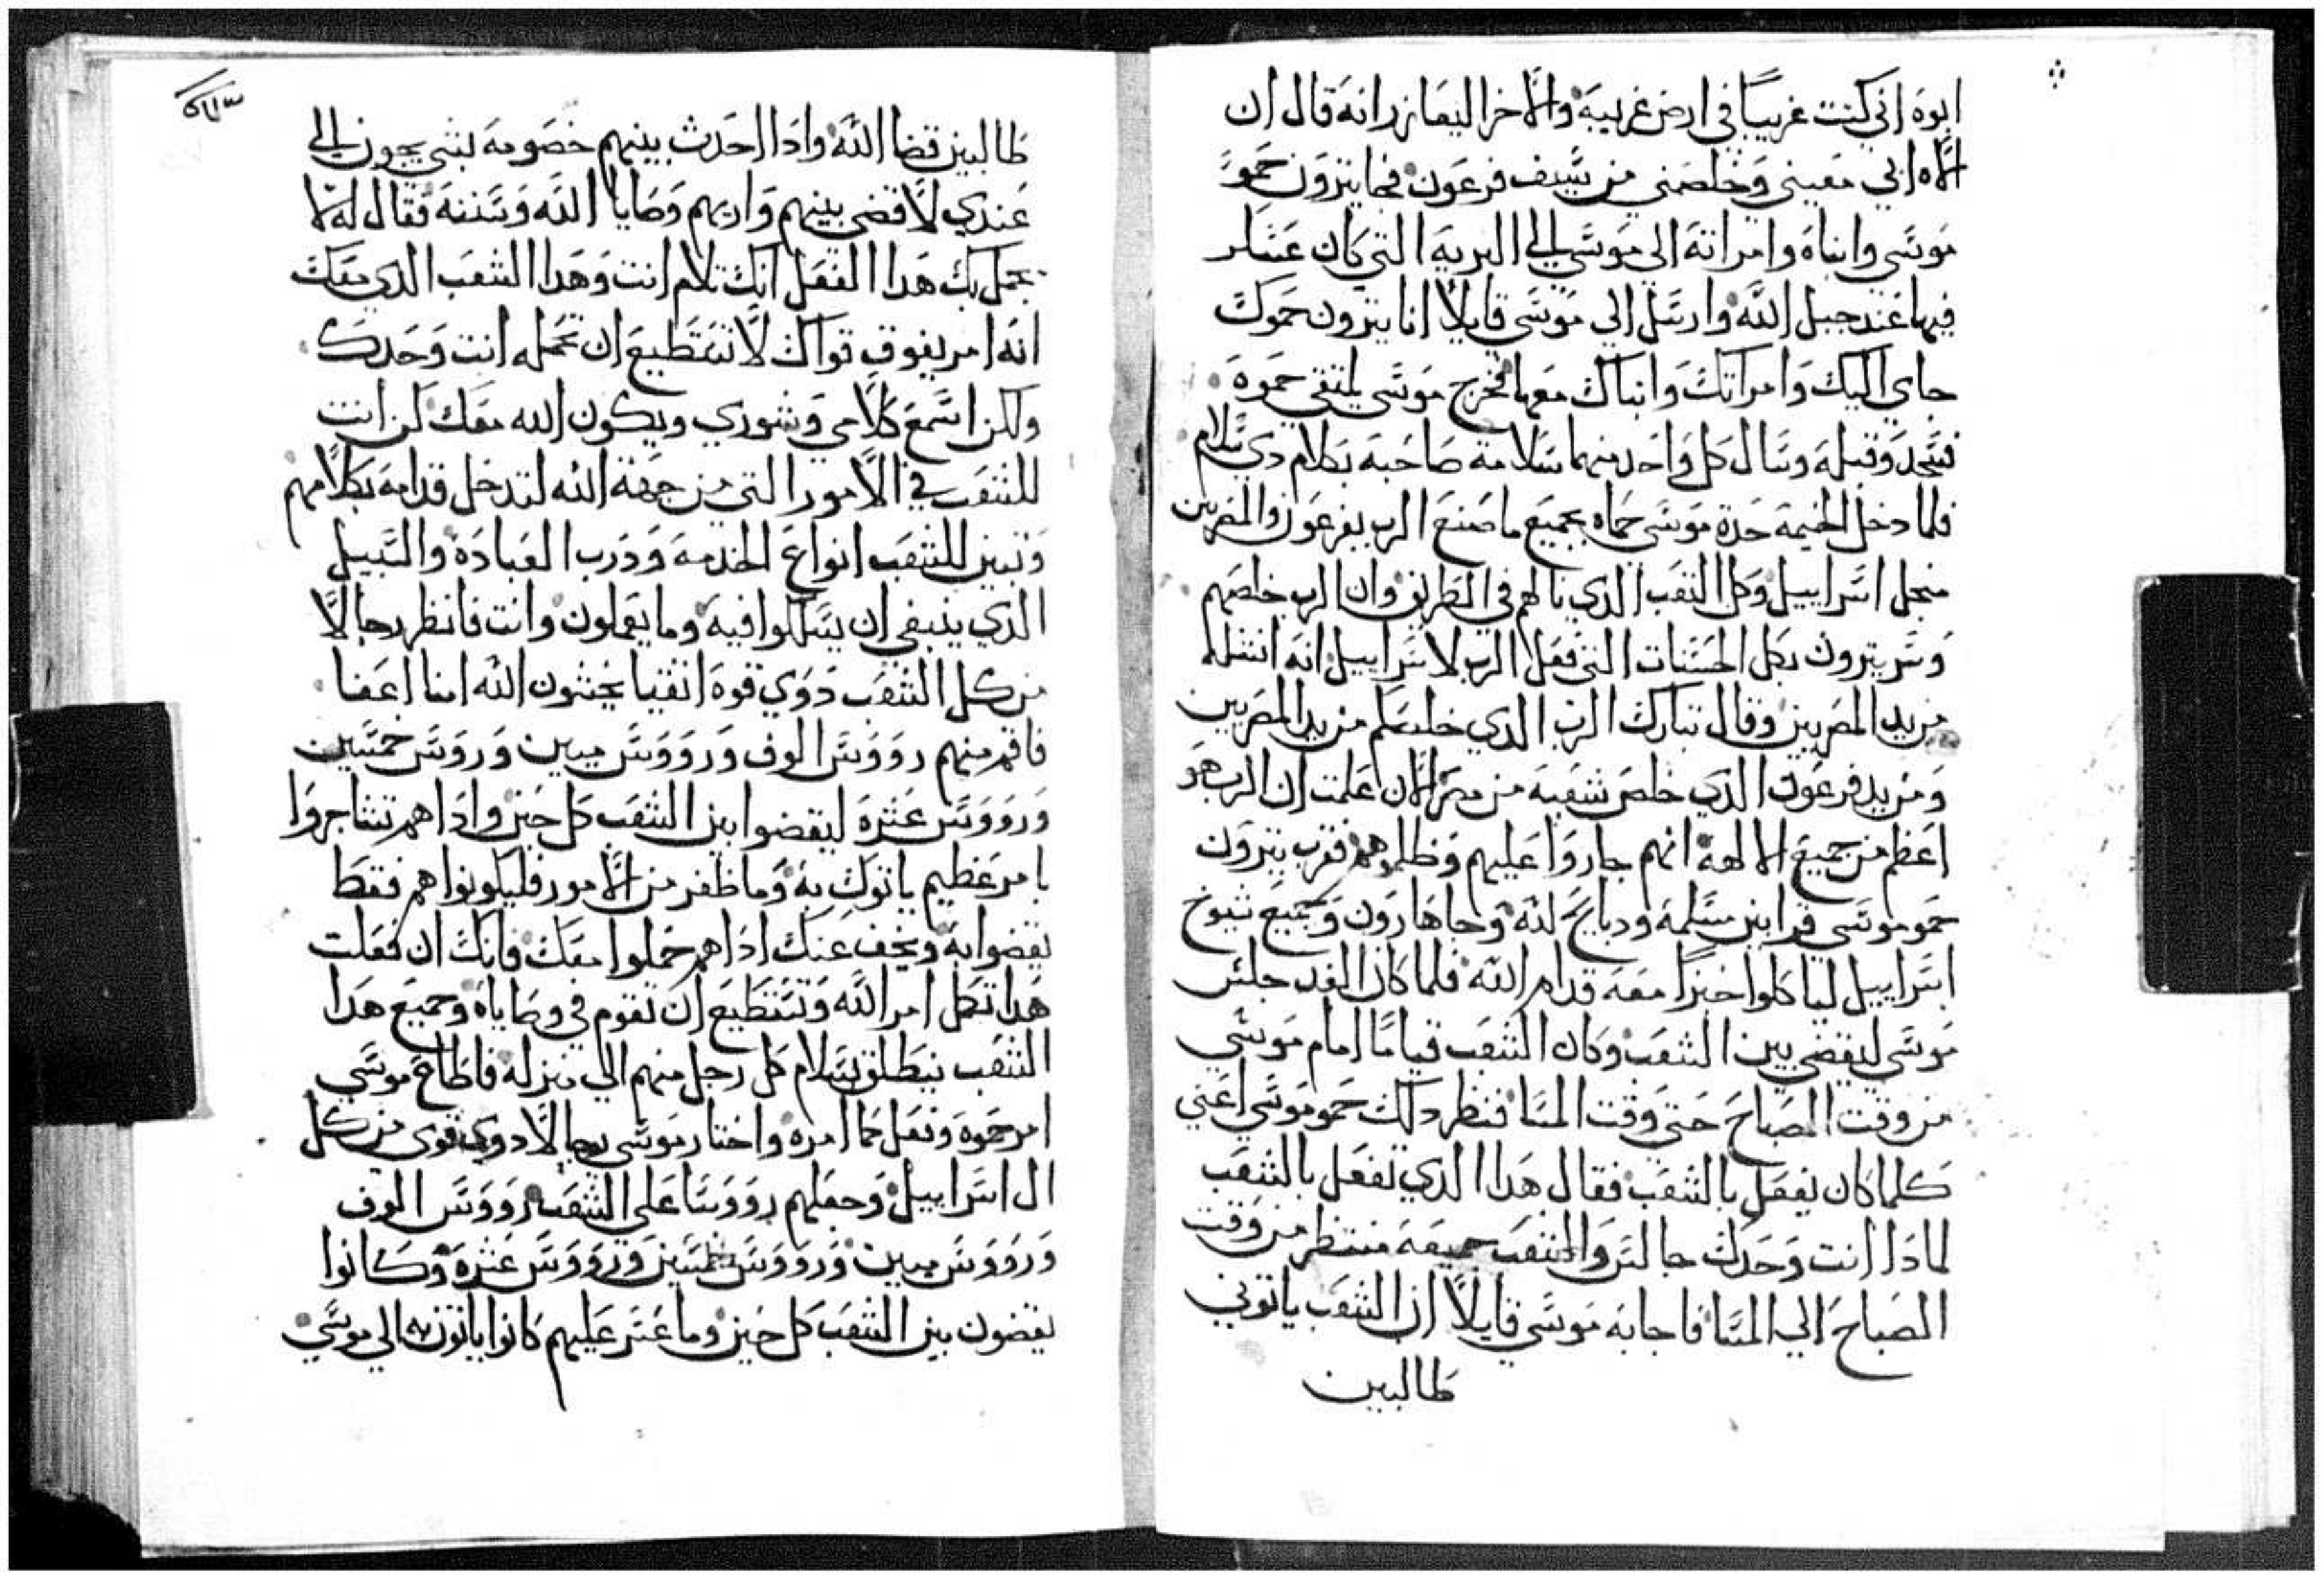 ابوه اني كنت غريبًا في ارض غريبة والاخر اليعازر انه قال ان
الاه ابي معيني وخلصني من سيف فرعون فجا يترون حمو
موسي وابناه وامراته الي موسي الي البرية التي كان عسكر
فيها عند جبل الله وارسل الي موسي قايلًا انا يترون حموك
جاي اليك وامراتك وابناك معها فخرج موسي يلتقي حموه
فسجد وقبله وسال كل واحد منهما سلامة صاحبه بكلام دي سلام
فلما دخل الخيمة حدة موسي حماه بجميع ما صنع الرب بفرعون والمصريين
منجل اسراييل وكل التعب الدي نالهم في الطريق وان الرب خلصهم
وسر يترون بكل الحسنات التي فعل الرب لاسراييل انه انتشلهم
من يد المصريين وقال تبارك الرب الدي خلصكم من يد المصريين
ومن يد فرعون الدي خلص شعبه من مصر الان علمت ان الرب هو
اعظم من جميع الالهة انهم جاروا عليهم وظلموهم فقرب يترون
حمو موسي قرابين مسلمة ودبايح لله وجا هارون وجميع شيوخ
اسراييل لياكلوا خبزًا معه قدام الله فلما كان الغد جلس
موسي ليقضي بين الشعب وكان الشعب قيامًا امام موسي
من وقت الصباح حتي وقت المسا فنظر دلك حمو موسي اعني
كلما كان يفعل بالشعب فقال هدا الدي تفعل بالشعب
لمادا انت وحدك جالس والشعب جميعه منتظر من وقت
الصباح الي المسا فاجابه موسي قايلًا ان الشعب ياتوني
طالبين
طالبين قضا الله وادا احدث بينهم خصومه بشي يجون الي
عندي لاقضي بينهم واريهم وصايا الله وسننه فقال له لا
يجمل بك هدا الفعل انك تلام انت وهدا الشعب الدي معك
انه امر يفوق قواك لا تستطيع ان تحمله انت وحدك
ولكن اسمع كلامي وشوري ويكون الله معك كن انت
للشعب في الامور التي من جهة الله لتدخل قدامه بكلامهم
وتبين للشعب انواع الخدمة ودرب العبادة والسبيل
الدي ينبغي ان يسلكوا فيه وما يعملون وانت فانظر رجالًا
من كل الشعب دوي قوة اتقيا يخشون الله امنا اعفا
فاقم منهم رووس الوف ورووس ميين وروس خمسين
ورووس عشرة ليقضوا بين الشعب كل حين وادا هم تشاجروا
بامر عظيم ياتوك به وما ظفر من الامور فليكونوا هم فقط
يقضوا به ويخف عنك ادا هم حملوا معك فانك ان فعلت
هدا تكمل امر الله وتستطيع ان تقوم في وصاياه وجميع هدا
الشعب ينطلق بسلام كل رجل منهم الي منزله فاطاع موسي
امر حموه وفعل كما امره واختار موسي رجالًا دوي قوي من كل
ال اسراييل وجعلهم رووسا علي الشعب رووس الوف
ورووس ميين ورووس خمسين ورووس عشرة وكانوا
يقضون بين الشعب كل حين وما عسر عليهم كانوا ياتون به الي موسي